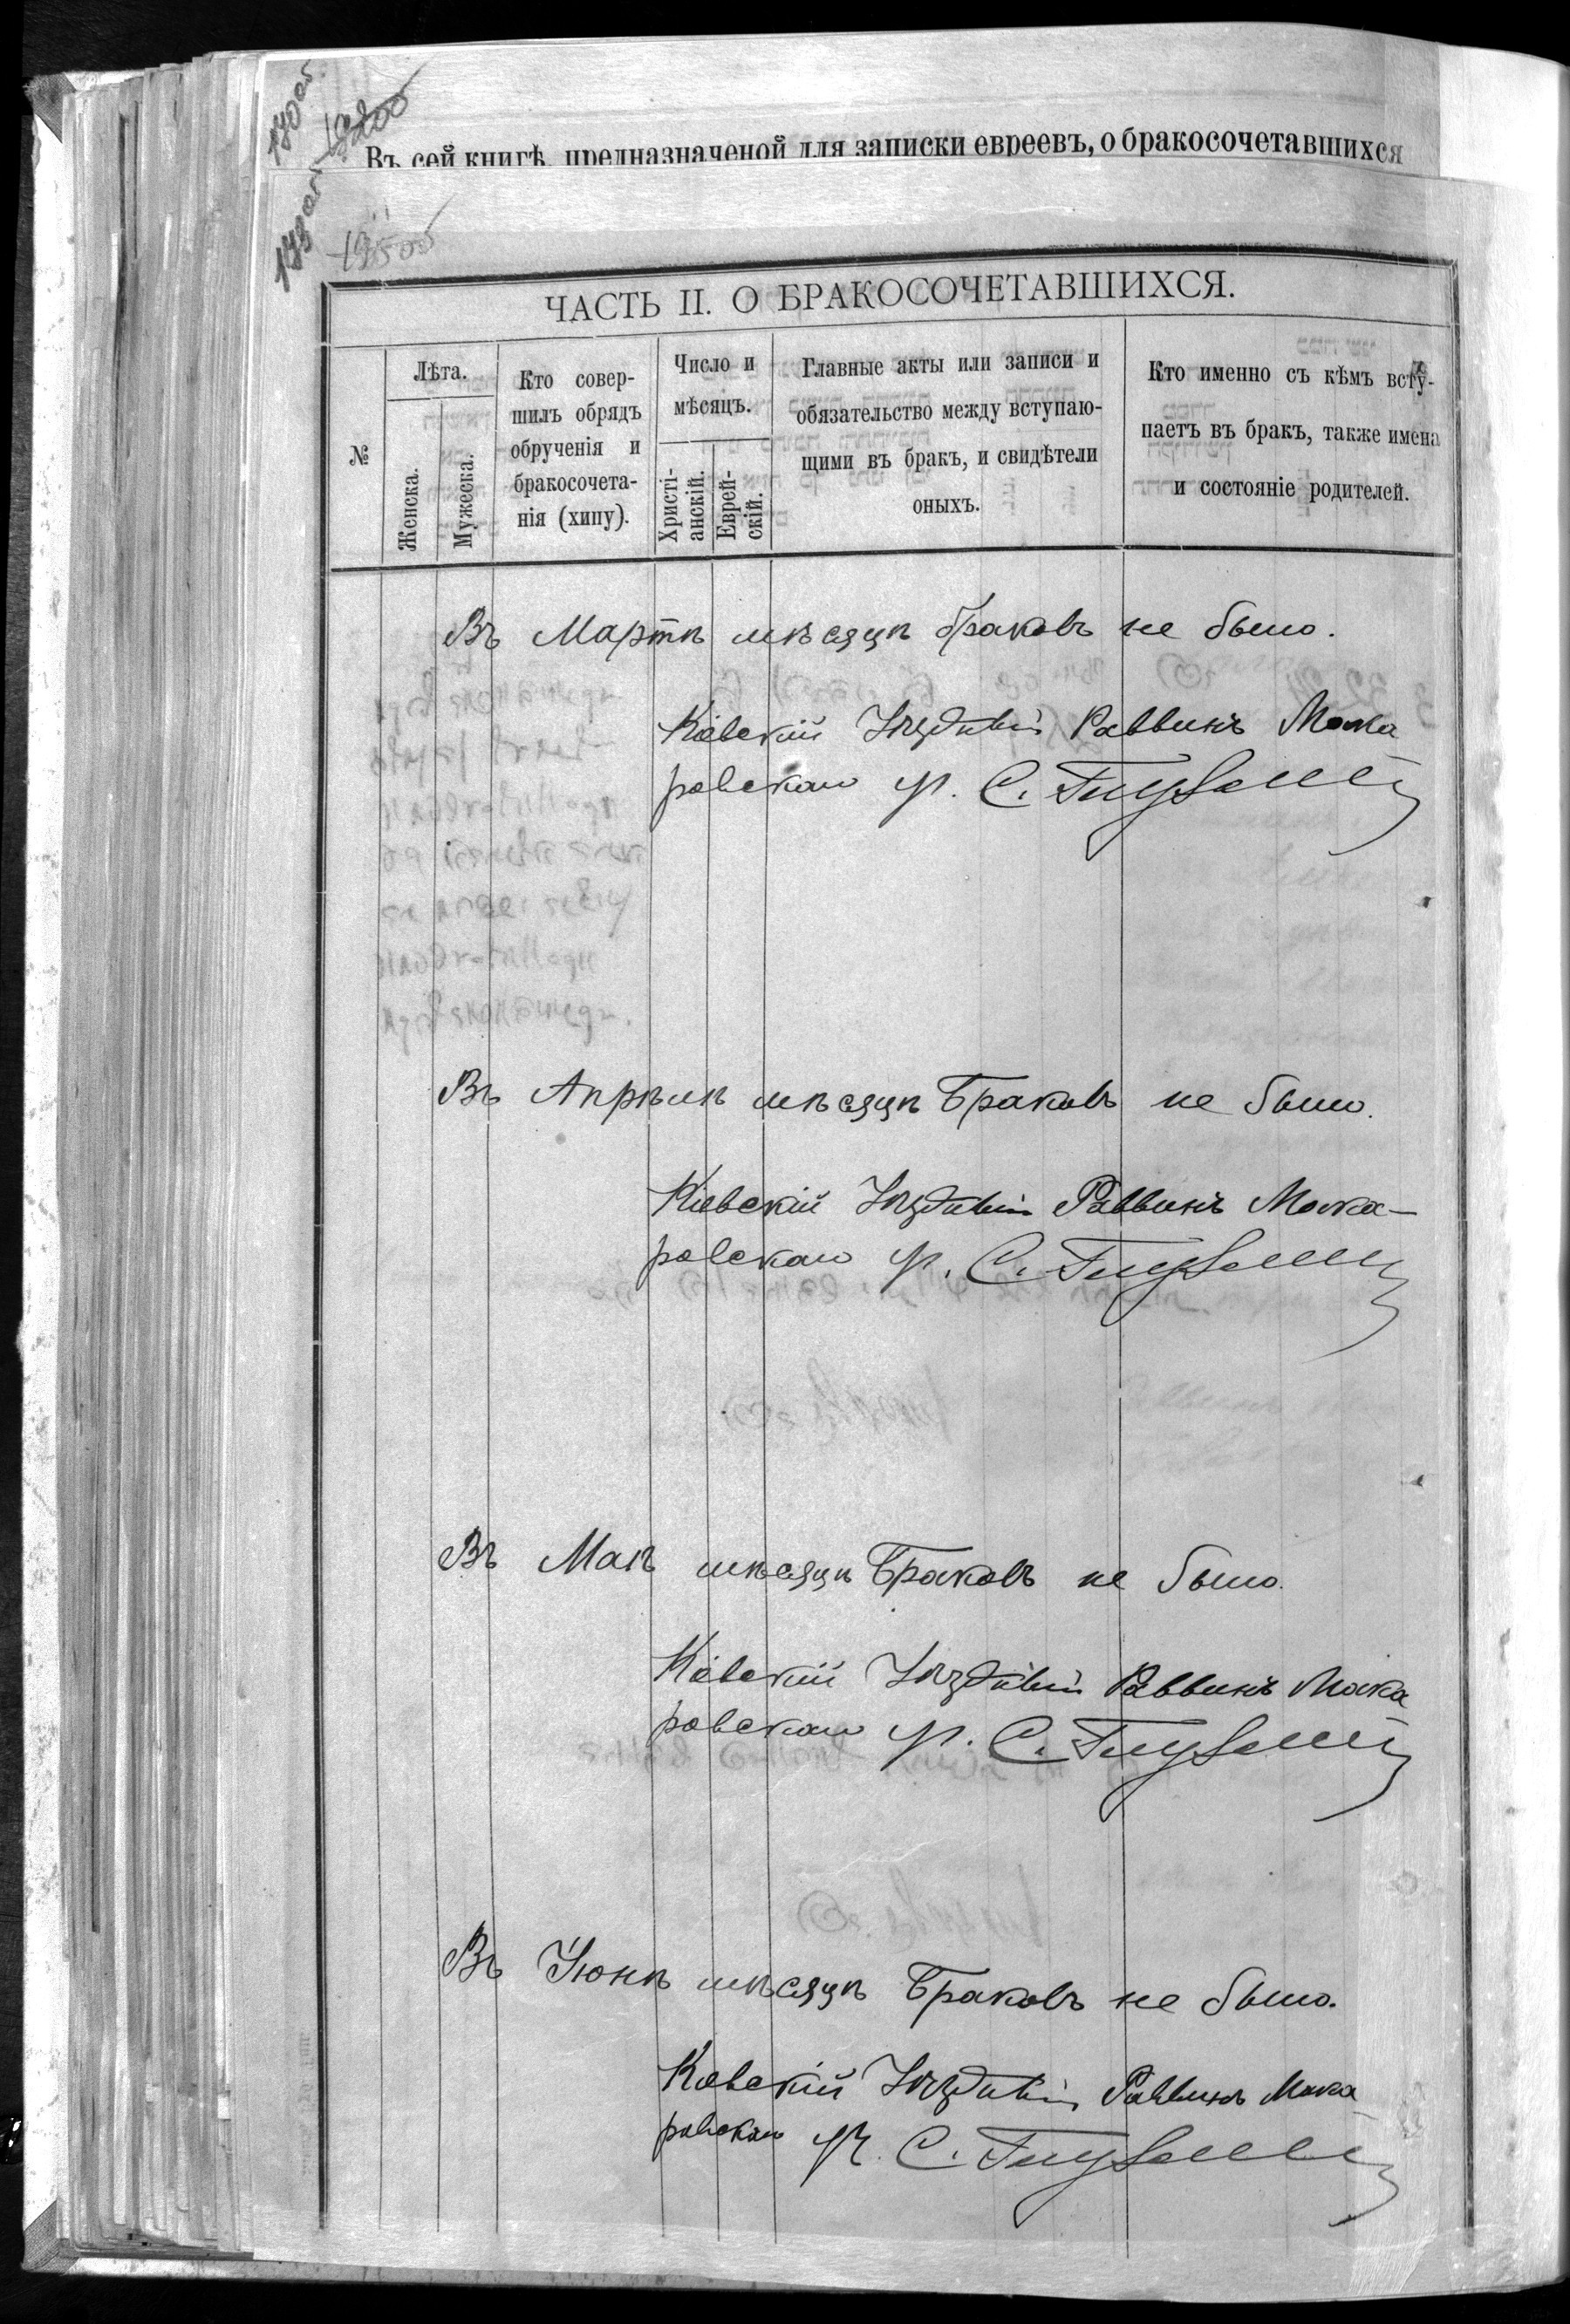 180 об.
Въ сей книгѣ, предназначеной для записки евреевъ, о бракосочетавшихся
ЧАСТЬ II. О БРАКОСОЧЕТАВШИХСЯ.
№
Лѣта.
Женска.
Мужеска.
Кто совер-
шилъ обрядъ
обрученія и
бракосочета-
нія (хипу).
Число и
мѣсяцъ.
Христі-
анскій.
Еврей-
скій.
Главные акты или записи и
обязательство между вступаю-
щими въ бракъ, и свидѣтели
оныхъ.
Кто именно съ кѣмъ всту-
паетъ въ бракъ, также имена
и состояніе родителей.
Въ Мартѣ мѣсяцѣ браковъ не было.
Кіевскій Уѣздный Раввинъ Мака
ровскаго уч. С.
Въ Апрѣлѣ мѣсяцѣ Браковъ не было.
Кіевскій Уѣздный Раввинъ Мака-
ровскаго уч. С.
Въ Маѣ мѣсяцѣ Браковъ не было.
Кіевскій Уѣздный Раввинъ Мака
ровскаго уч. С.
Въ Іюнѣ мѣсяцѣ Браковъ не было.
Кіевскій Уѣздный Раввинъ Мака
ровскаго уч. С.